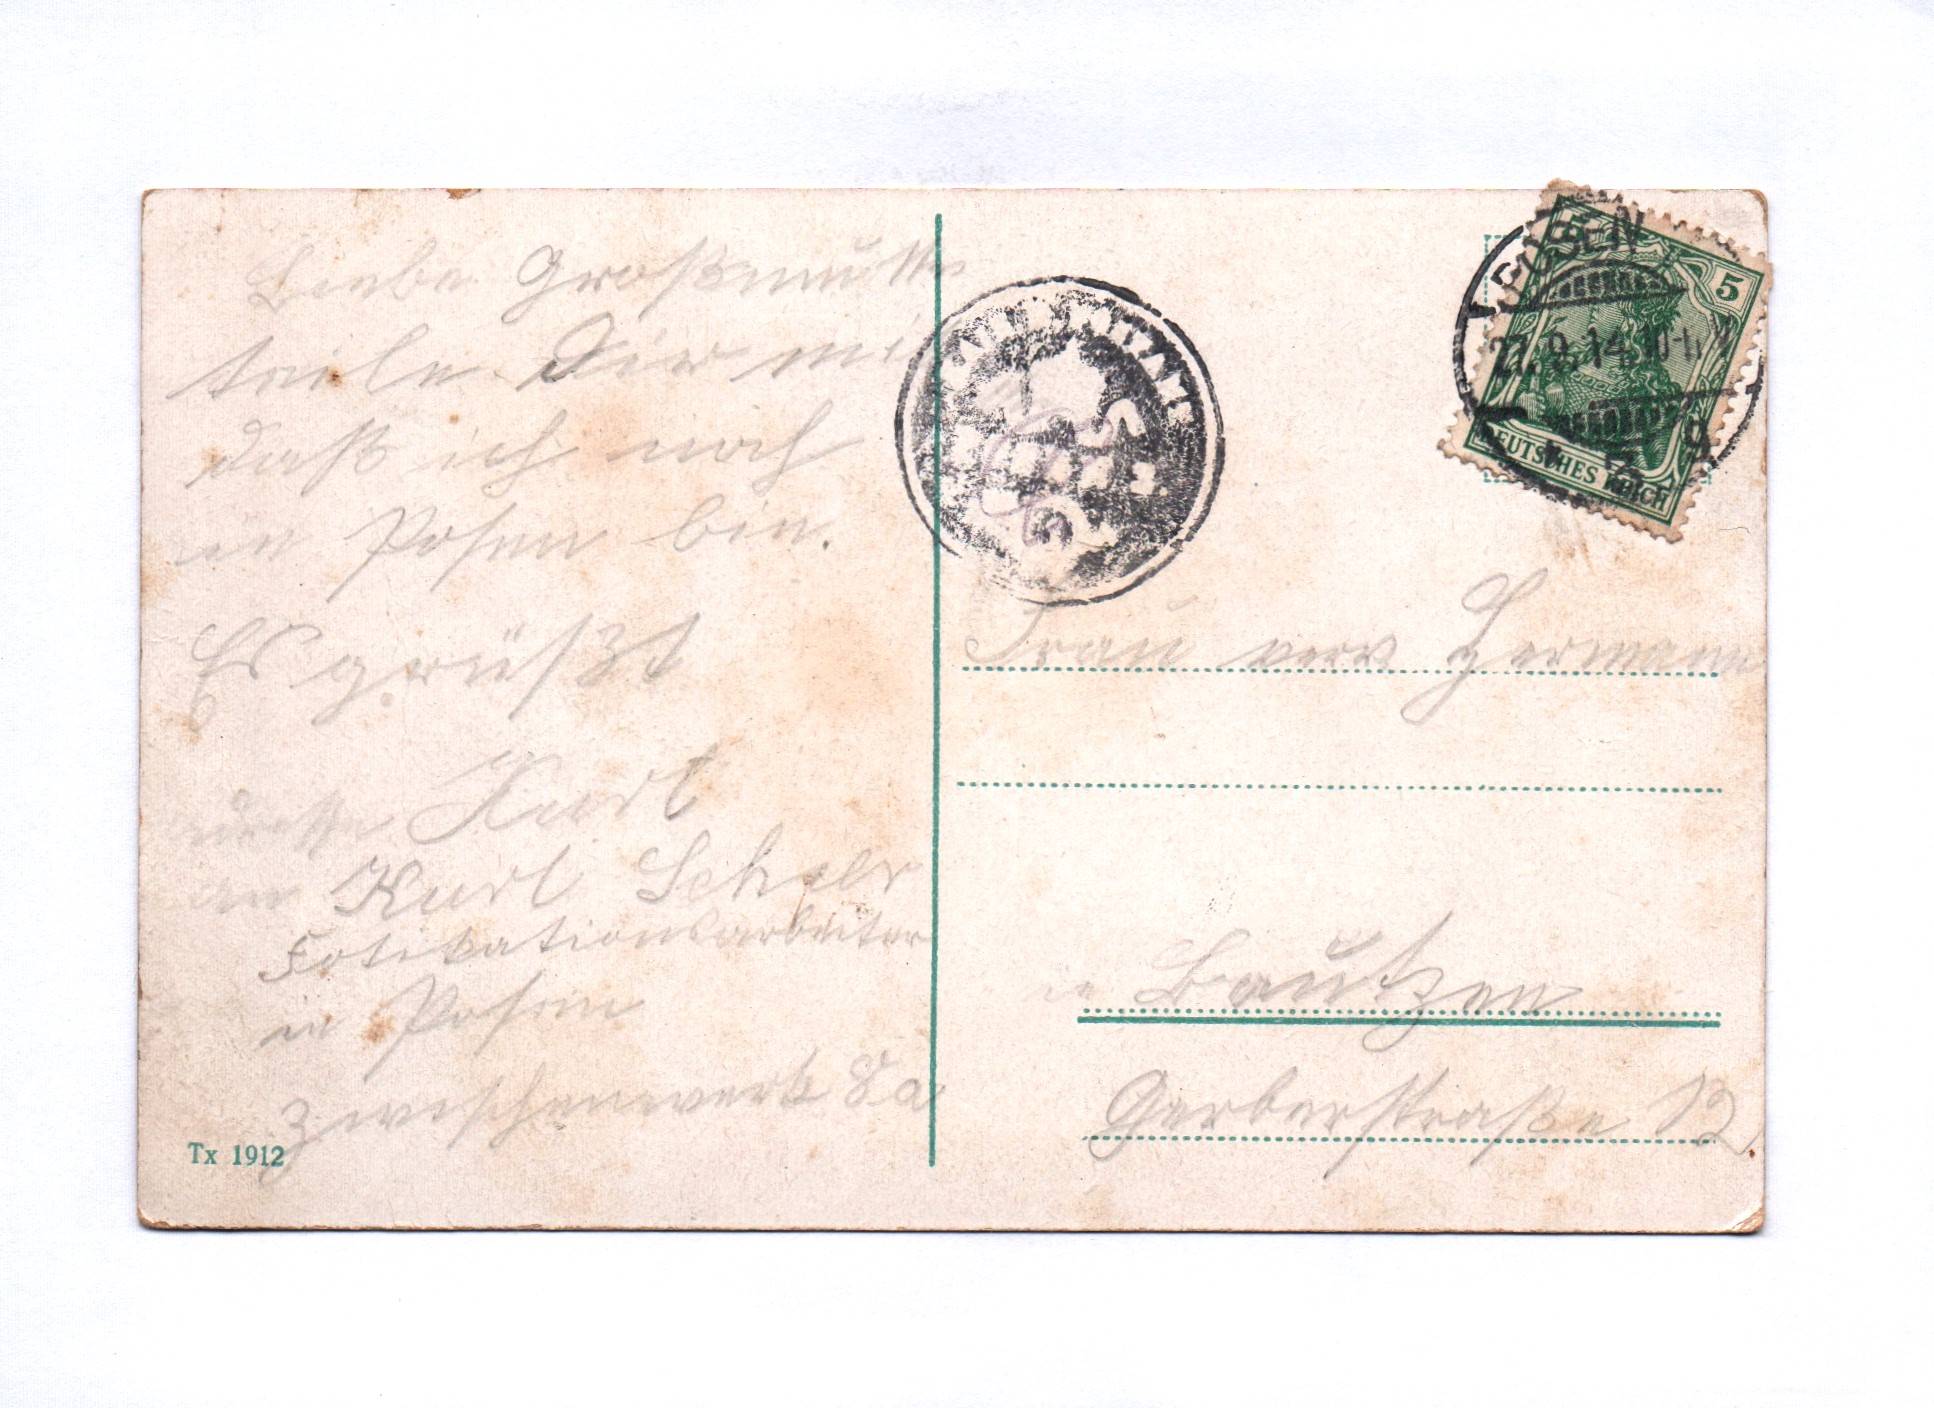 Liebe Großmutter
teile Dir mit
daß ich noch
in Posen bin.
Es grüßt
Karl
an Karl
Fotifikationsarbeiter
in Posen
Zwischenwerk 8a
Tx 1912
POSEN
5
DEUTSCHES REICH
Frau verw Hermann
in Bautzen
Gerberstraße 12